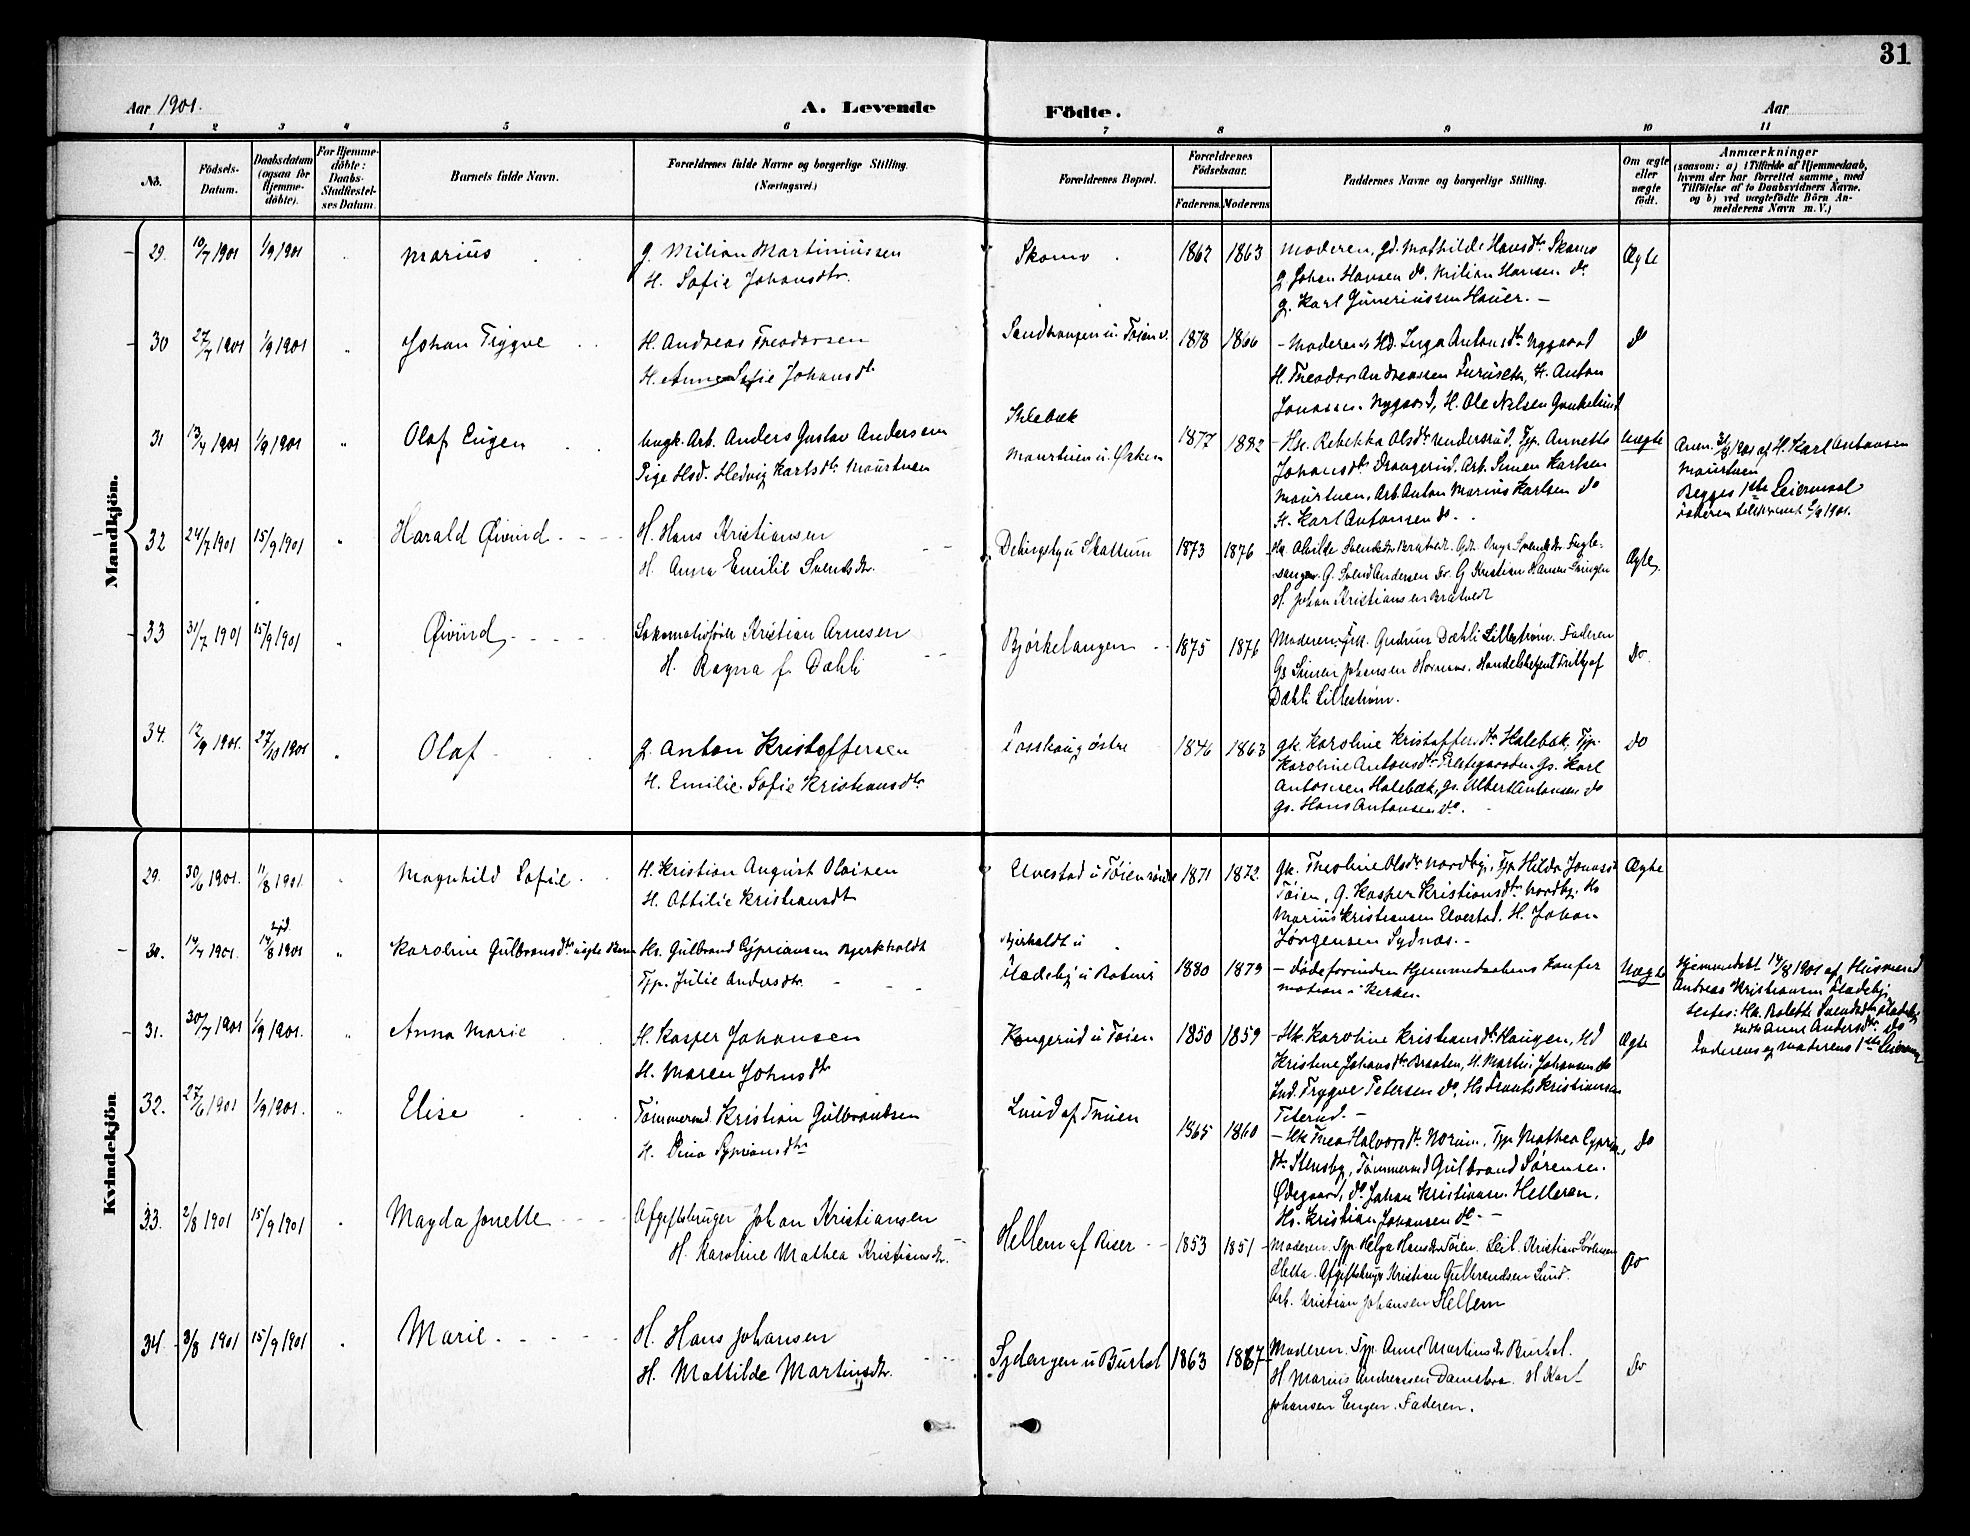 31
Aar 1901.
A. Levende
Födte.
Aar
1 2 3 4 5 6 7 8 9 10 11
No.
Födsels-
Datum.
Daabsdatum
(ogsaa for
Hjemme-
döbte).
For Hjemme-
döbte:
Daabs-
Stadfæstel-
ses Datum.
Barnets fulde Navn.
Forældrenes fulde Navne og borgerlige Stilling.
(Næringsvei.)
Forældrenes Bopæl.
Forældrenes
Födselsaar.
Faderens. Moderens.
Faddernes Navne og borgerlige Stilling.
Om ægte
eller
uægte
födt.
Anmærkninger
(saasom: a) i Tilfælde af Hjemmedaab,
hvem der har forrettet samme, med
Tilföielse af to Daabsvidners Navne,
og b) ved uægtefödte Börn An-
melderens Navn m. V.)
Mandkjön.
29. 10/7 1901 1/9 1901 Marius
G. Milian Martiniussen
H. Sofie Johansdtr.
Skomo 1862 1863
Moderen, Gd. Mathilde Hansdtr Skomo
G. Johan Hansen do. Milian Hansen do
G. Karl Gunerinssen Hauer. —
Ægte
30 27/7 1901 1/9 1901 Johan Trygve
H. Andreas Theodorsen
H. Anne Sofie Johansdtr
Sandhaugen u. Toien 1878 1866
— Moderen Hd. Inga Antonsdtr Nygaard
H. Theodor Andreassen Furuseth, H. Anton
Jonassen Nygaard, H. Ole Nilsen
do
31 13/7 1901 1/9 1901 Olaf Eugen
Ungk. Arb. Anders Gustav Andersen
Pige Hsd. Hedvig Karlsdtr Maurtuen
Maurtuen u. Ørken 1877 1882
Hk. Rebekka Olsdtr Underrud, Tjp. Annette
Johansdtr Drangerud, Arb. Simen Karlsen
Maurtuen, Arb. Anton Marius Karlsen do
H. Karl Antonsen do.
Uægte
1901 af H. Karl Antonsen
Maurtuen
Begges 1ste Leiermaal
1901.
32 24/7 1901 15/9 1901 Harald Øivind
H. Hans Kristiansen
H. Anna Emilie Svendsdtr.
Skattum 1873 1876
G. Svend Andersen G. Kristian Hansen
H. Johan Kristiansen Bratvedt
Ægte
33 31/7 1901 15/9 1901 Øivind
Lokomotivförer Kristian Arnesen
H. Ragna f. Dæhli
Bjørkelangen 1875 1876
Moderen Frk. Gudrun Dæhli Lillestrøm. Faderen
Gs Simen Johansen Hornnes. Handelsbetjent Fritjof
Dæhli Lillestrøm.
Do
34. 12/9 1901. 27/10 1901 Olaf
G. Anton Kristoffersen
H. Emilie Sofie Kristiansdtr
Fosshaug østre 1846 1863
Gk. Karoline Kristoffersdtr Halebæk, Tjp.
Karoline Antonsdtr Prestegaarden, Gs. Karl
Antonsen Halebæk, Gs. Albert Antonsen do
Gs. Hans Antonsen do.
do
Kvindekjön
29. 30/6 1901. 11/8 1901. Magnhild Sofie
H. Kristian August Olaisen
H. Ottilie Kristiansdt
Elvestad u Tøien 1871 1872
Gk. Theoline Olsdtr Nordby, Tjp Hilda Jonasdt
Tøien, G. Kasper Kristiansdtr Nordby, Hs
Marius Kristiansen Elvestad, H. Johan
Jørgensen Sydnæs. —
Ægte
30. 14/7 1901. 14/8 1901 Karoline Gulbransdtr uægte
Hs. Gulbrand Cyprianssen Bjerkholdt
Tjp. Julie Andersdtr.
Bjerkholdt u
Fladeby u Botner 1880 1879
— døde forinden Hjemmedaabens Konfir
mation i Kirken.
Uægte
Hjemmedøbt 14/8 1901 af Husmand
Andreas Kristiansen Fladeby
Anne Andersdtr do
Faderens og Moderens 1ste Leierm
31. 30/7 1901 1/9 1901. Anna Marie
H. Kasper Johansen
H. Maren Johnsdtr
Kongerud u Tøien 1850 1859
— Hk. Karoline Kristiansdtr Haugen, Hd
Kristine Johansdtr Braaten, H. Martin Johansen do
Ind. Trygve Petersen do, Hs Frants Kristiansen
Titerud. —
Ægte
32. 27/6 1901 1/9 1901. Elise
Tømmermd Kristian Gulbrandsen
H. Dina Cypriansdtr
Lund af Truen 1865 1860
— Hk Thea Halvorsdtr Norum, Tjp Mathea Cyprians
dtr Stensby, Tømmermd Gulbrand Sørensen
Ødegaard, do Johan Kristiansen Helleren,
Hs. Kristian Johansen do. —
Do
33. 2/8 1901 15/9 1901 Magda Jonette
Afgiftsbruger Johan Kristiansen
H. Karoline Mathea Kristiansdtr.
Hellern af Riser 1853 1851
Moderen. Tjp. Helga Hansdtr Tøien. Kristian Sørensen
Sletta. Afgiftsbruger Kristian Gulbrandsen Lund.
Arb. Kristian Johansen Hellern
Do
34 3/8 1901 15/9 1901 Marie
H. Hans Johansen
H. Mathilde Martinsdtr.
Sydengen u Burtol 1863 1867
Moderen. Tjp. Anne Martinsdtr Burtol.
H Marius Andreassen Damstua. H Karl
Johansen Engen. Faderen.
Do